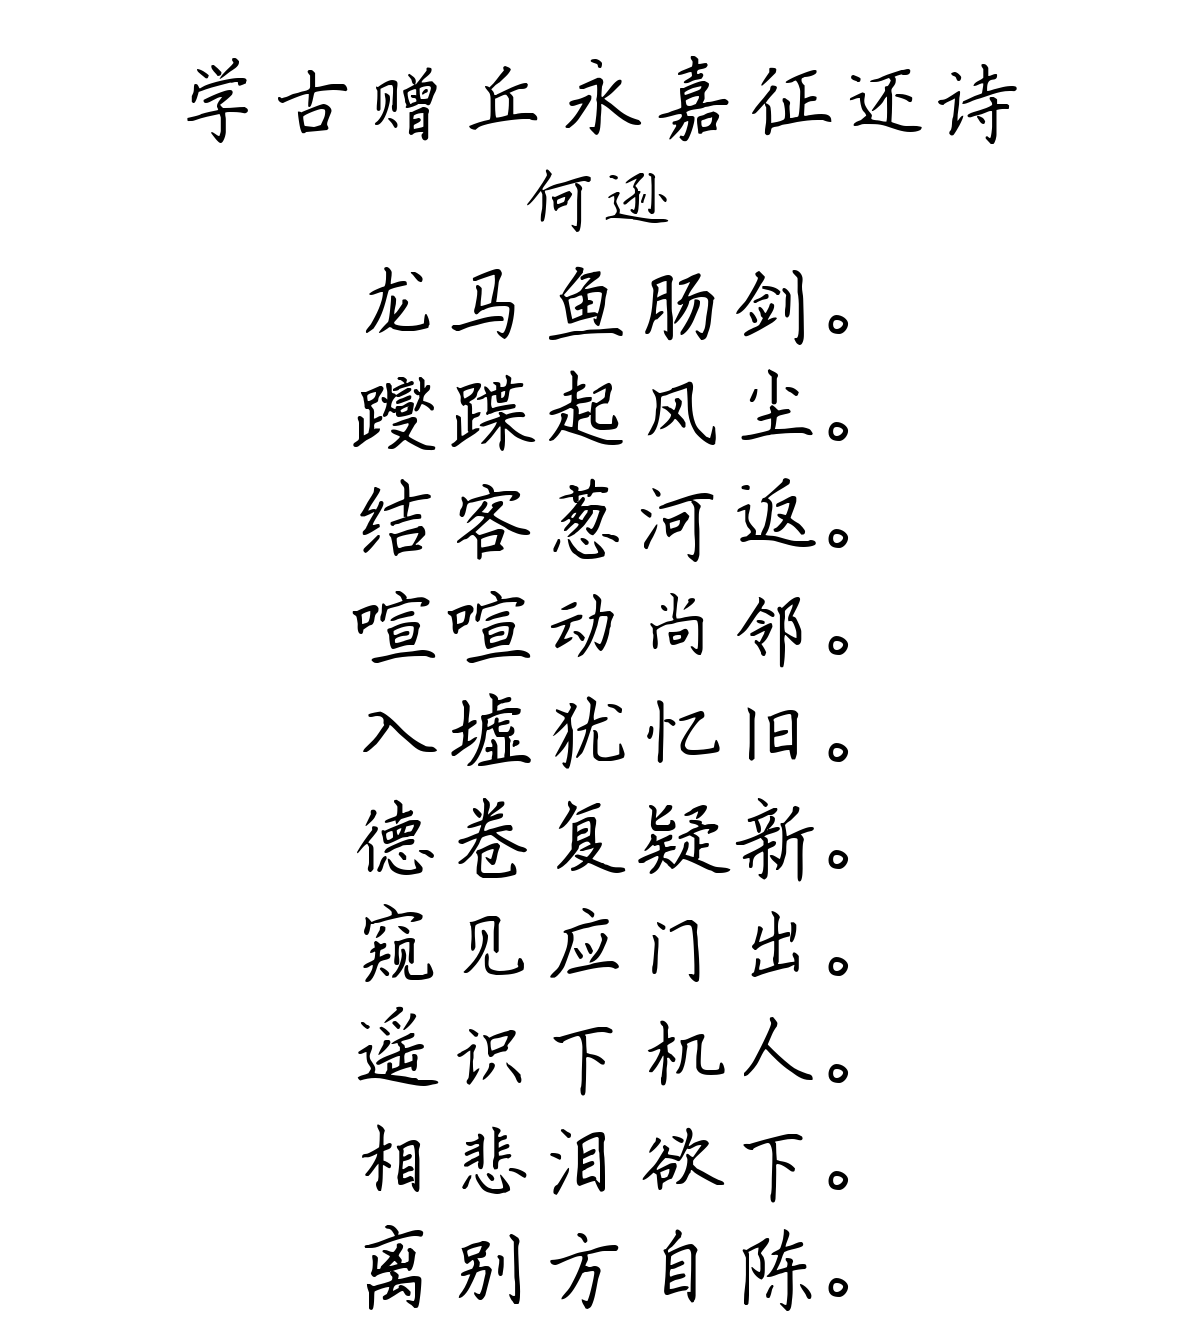 学古赠丘永嘉征还诗
何逊
龙马鱼肠剑。
躞蹀起风尘。
结客葱河返。
喧喧动尚邻。
入墟犹忆旧。
德卷复疑新。
窥见应门出。
遥识下机人。
相悲泪欲下。
离别方自陈。